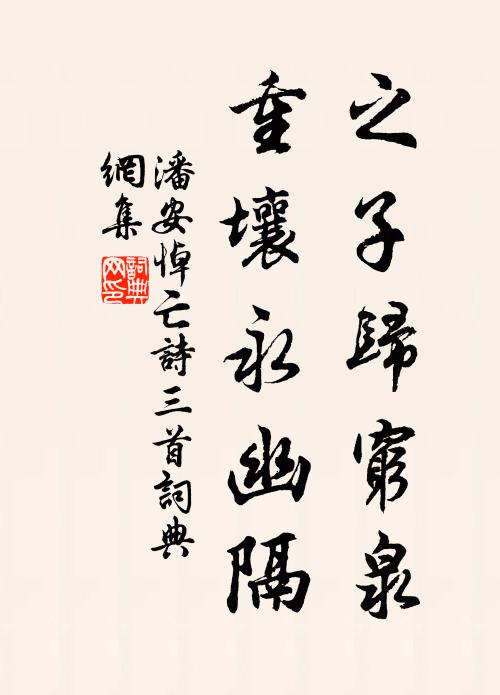 之子歸窮泉
重壤永幽隔
潘安悼亡詩三首詞典
網集
詞典
网印